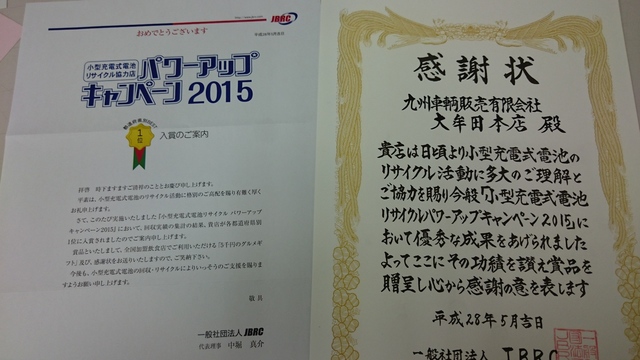 JBRC
おめでとうございます
小型充電式電池
リサイクル協力店
パワーアップ
キャンペーン2015
1位
入賞のご案内
拝啓 時下ますますご清祥のこととお慶び申し上げます。
平素は、小型充電式電池のリサイクル活動に格別のご高配を賜り有難く厚く
お礼申上げます。
さて、このたび実施いたしました「小型充電式電池リサイクル パワーアップ
キャンペーン2015」において、回収実績の集計の結果、貴店が各都道府県別
1位に入賞されましたのでご案内申し上げます。
賞品といたしまして、全国加盟飲食店でご利用いただける「3千円のグルメギ
フト」及び、感謝状をお送りいたしますので、ご笑納下さい。
今後も、小型充電式電池の回収・リサイクルによりいっそうのご支援を賜りま
すようお願い申し上げます。
敬具
一般社団法人 JBRC
代表理事 中堀 真介
感謝状
九州車輌販売有限会社
大牟田本店 殿
貴店は日頃より小型充電式電池の
リサイクル活動に多大のご理解と
ご協力を賜り今般「小型充電式電池
リサイクルパワーアップキャンペーン2015」に
おいて優秀な成果をあげられました
よってここにその功績を讃え賞品を
贈呈し心から感謝の意を表します
平成28年5月吉日
一般社団法人 JBRC